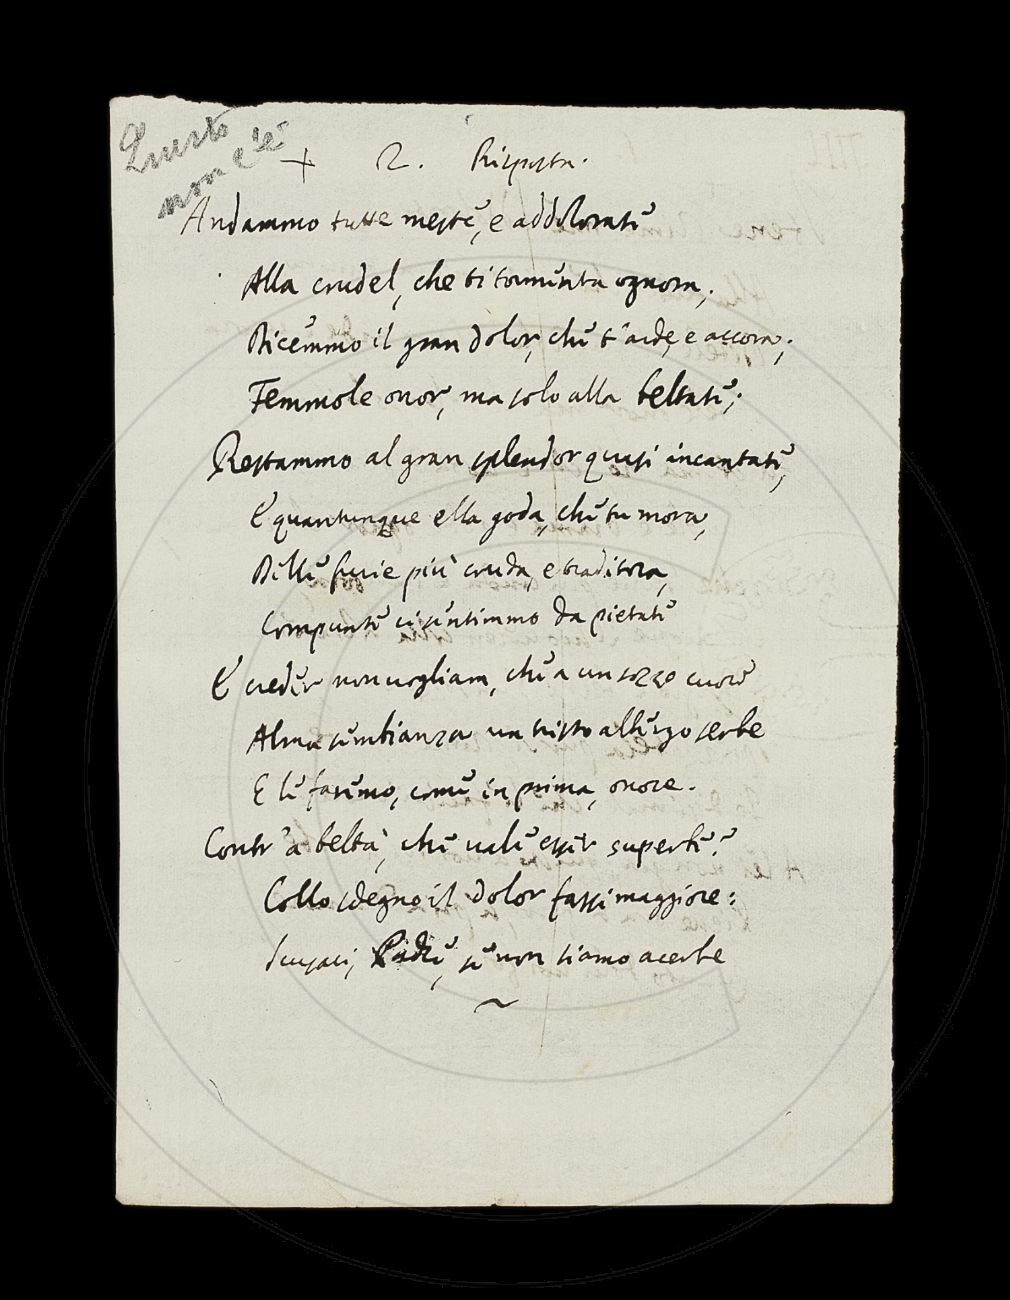 Questo
non c'è
+ 2. Risposta.
Andammo tutte meste, e addolorate
Alla crudel, che ti tormenta ognora,
Dicemmo il gran dolor, che t'arde, e accora;
Femmole onor, ma solo alla beltate;
Restammo al gran splendor quasi incantate,
E quantunque ella goda, che tu mora,
Delle furie più cruda, e traditora,
Compunte ci sentimmo da pietate
E creder non vogliam, che a un sozzo cuore
Alma sembianza un tristo albergo serbe
E le faremo, come in prima, onore.
Contr'a beltà, che vale esser superbe?
Collo sdegno il dolor fassi maggiore:
Scusaci, se non siamo acerbe
~